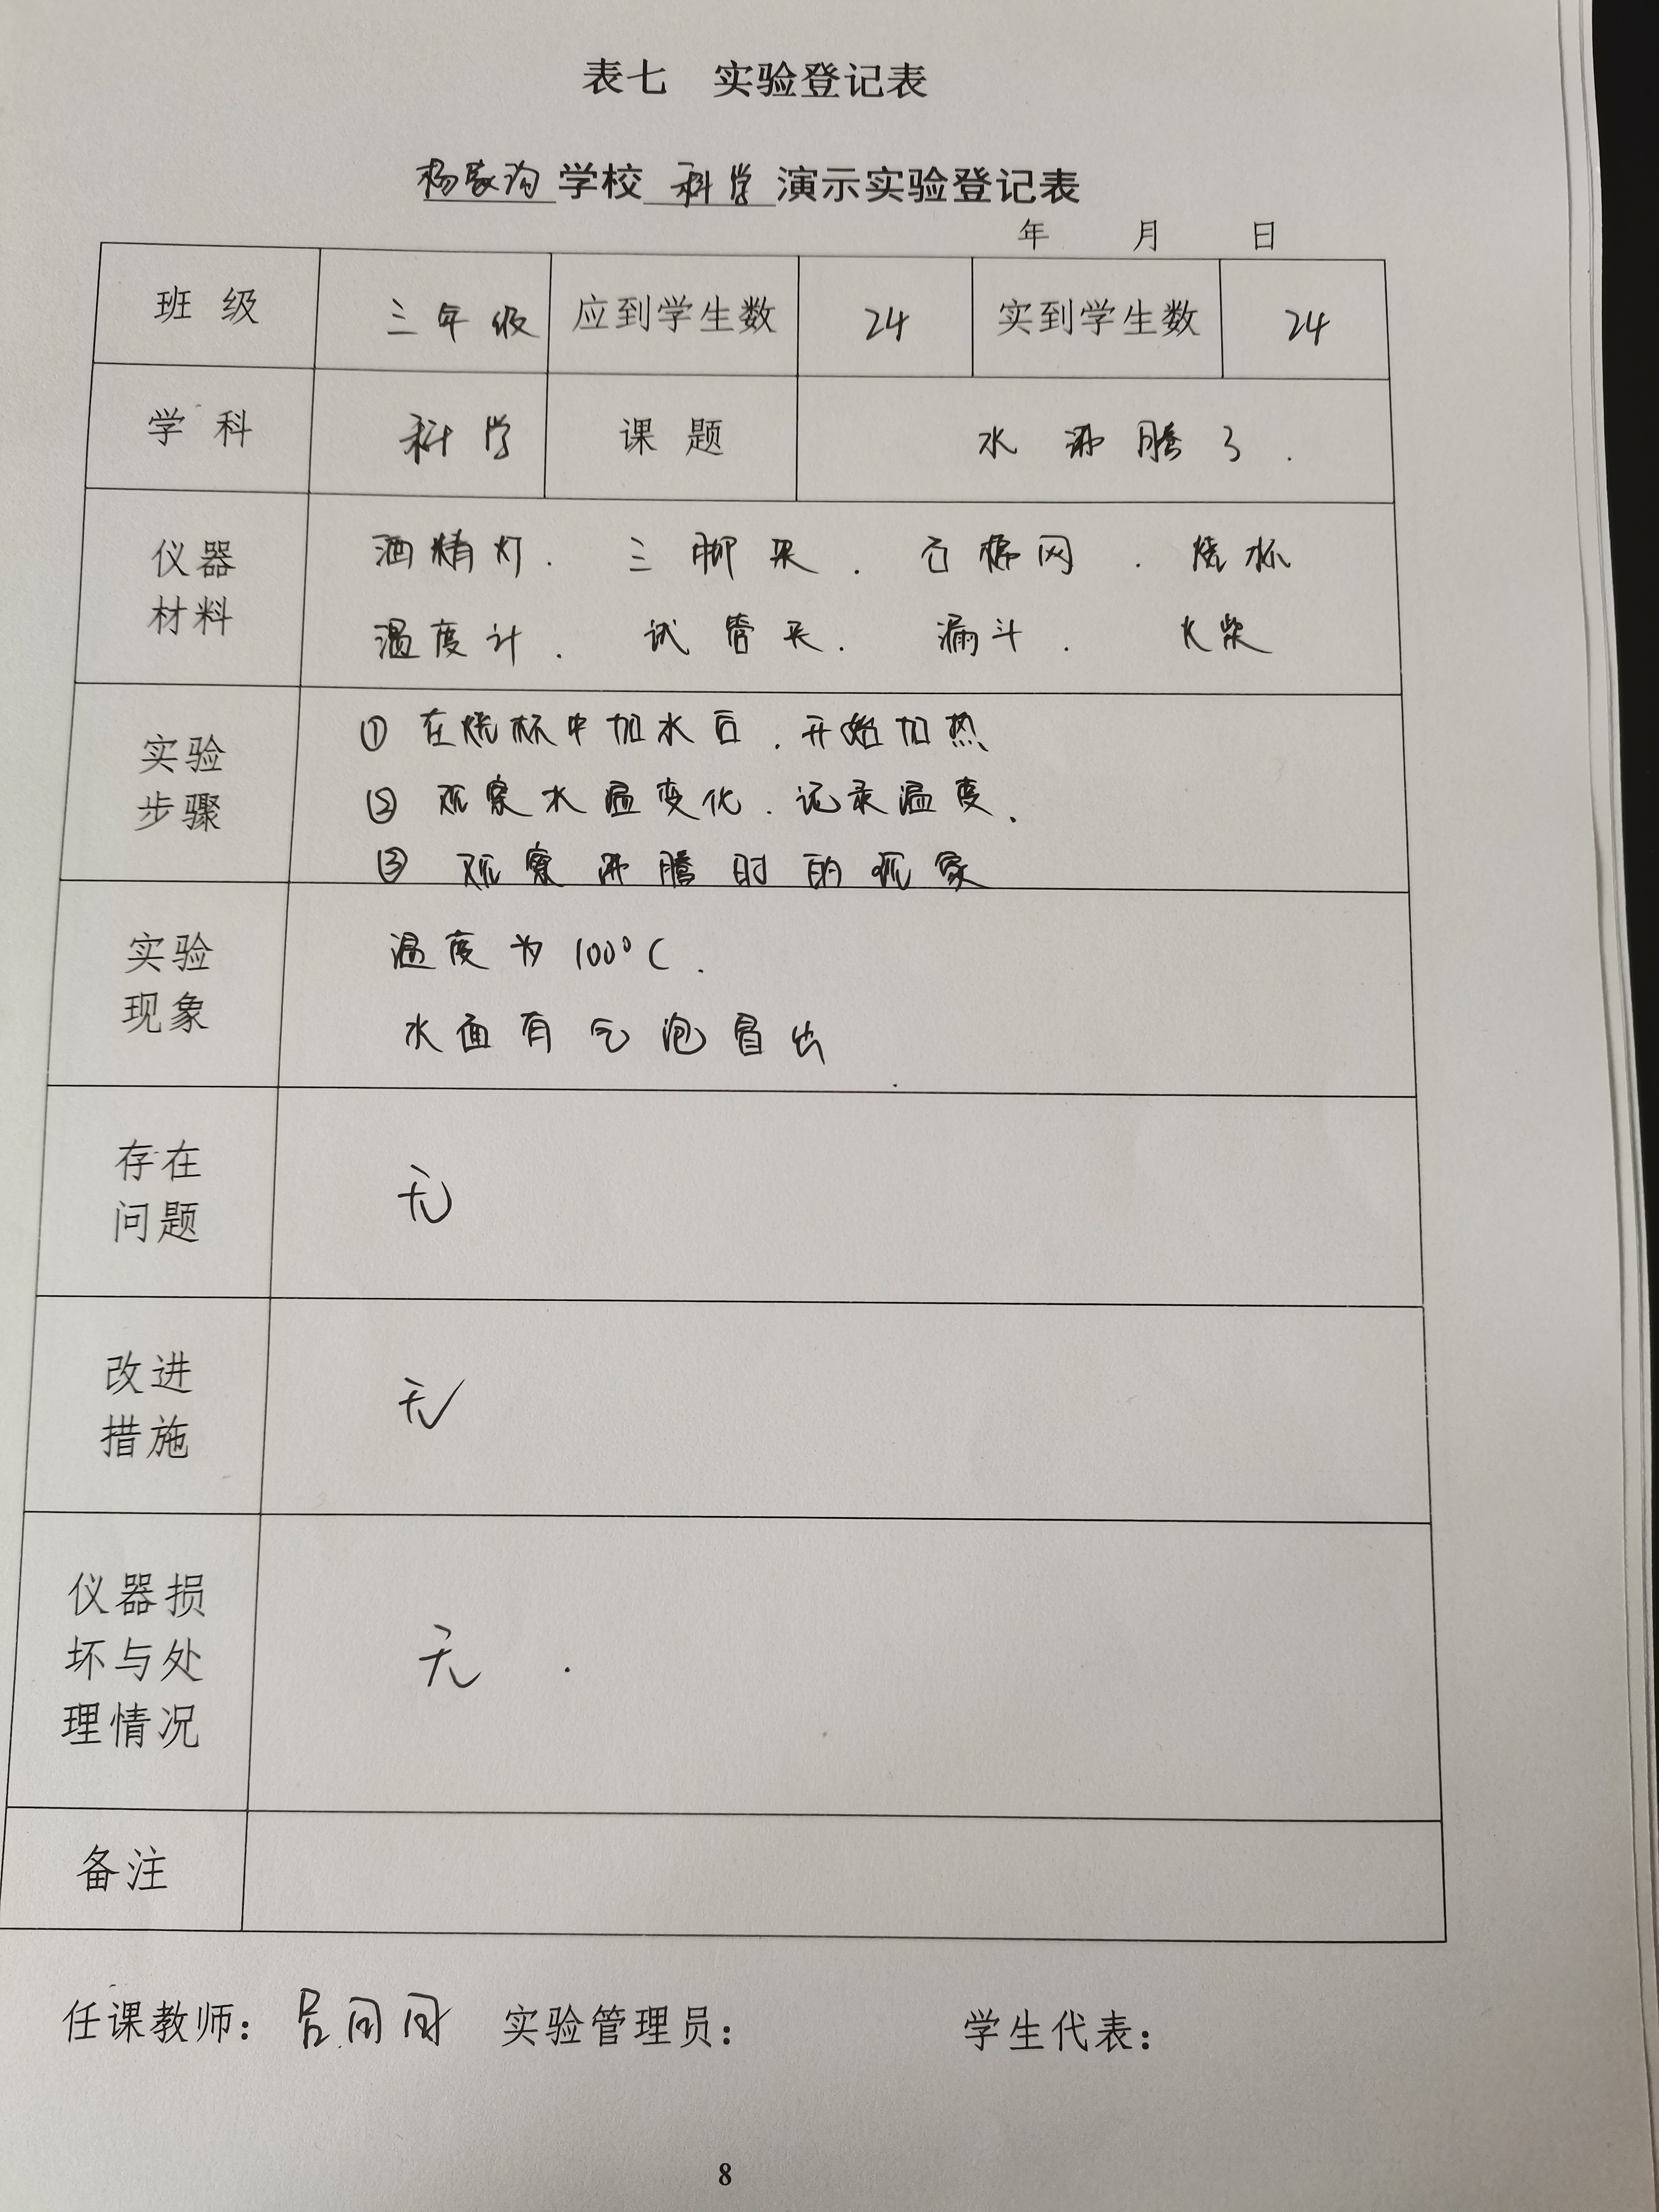 表七 实验登记表
杨家沟学校 科学 演示实验登记表
年 月 日
班 级 三年级 应到学生数 24 实到学生数 24
学 科 科学 课 题 水沸腾了.
仪器
材料
酒精灯. 三脚架. 石棉网. 烧杯
温度计. 试管夹. 漏斗. 火柴
实验
步骤
① 在烧杯中加水后.开始加热
② 观察水温变化.记录温度.
③ 观察沸腾时的现象
实验
现象
温度为100°C.
水面有气泡冒出
存在
问题
无
改进
措施
无
仪器损
坏与处
理情况
无.
备注
任课教师: 实验管理员: 学生代表:
8